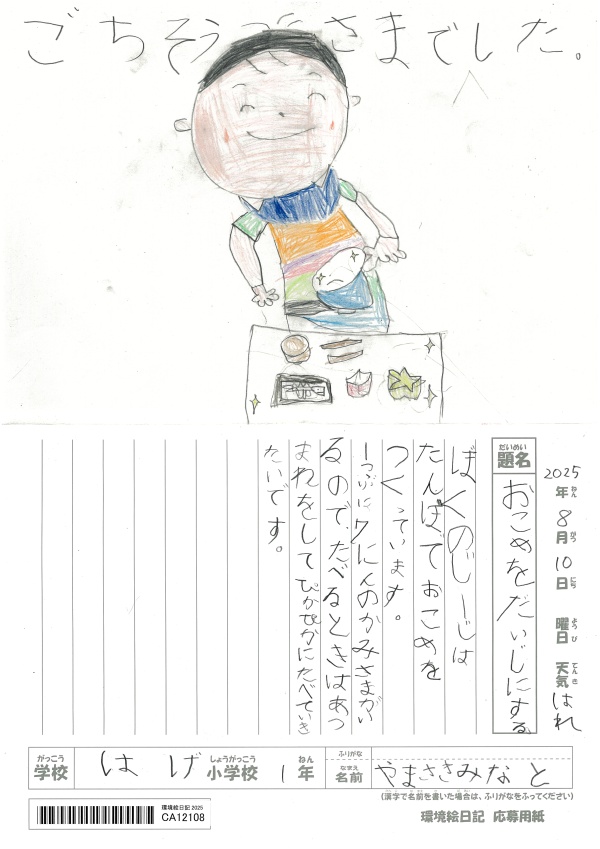 ごちそうごさまでした。
2025年ねん8月がつ10日にち 曜日ようび 天気てんき はれ
題名だいめい おこめをだいじにする
ぼくのじーじは
たんぼでおこめを
つくっています。
一つぶに7にんのかみさまがい
るので、たべるときはあつ
まれをしてぴかぴかにたべていき
たいです。
学校がっこう はげ 小学校しょうがっこう 1年ねん ふりがな 名前なまえ やまさきみなと
(漢字で名前を書いた場合は、ふりがなをふってください)
環境絵日記 2025
CA12108
環境絵日記 応募用紙